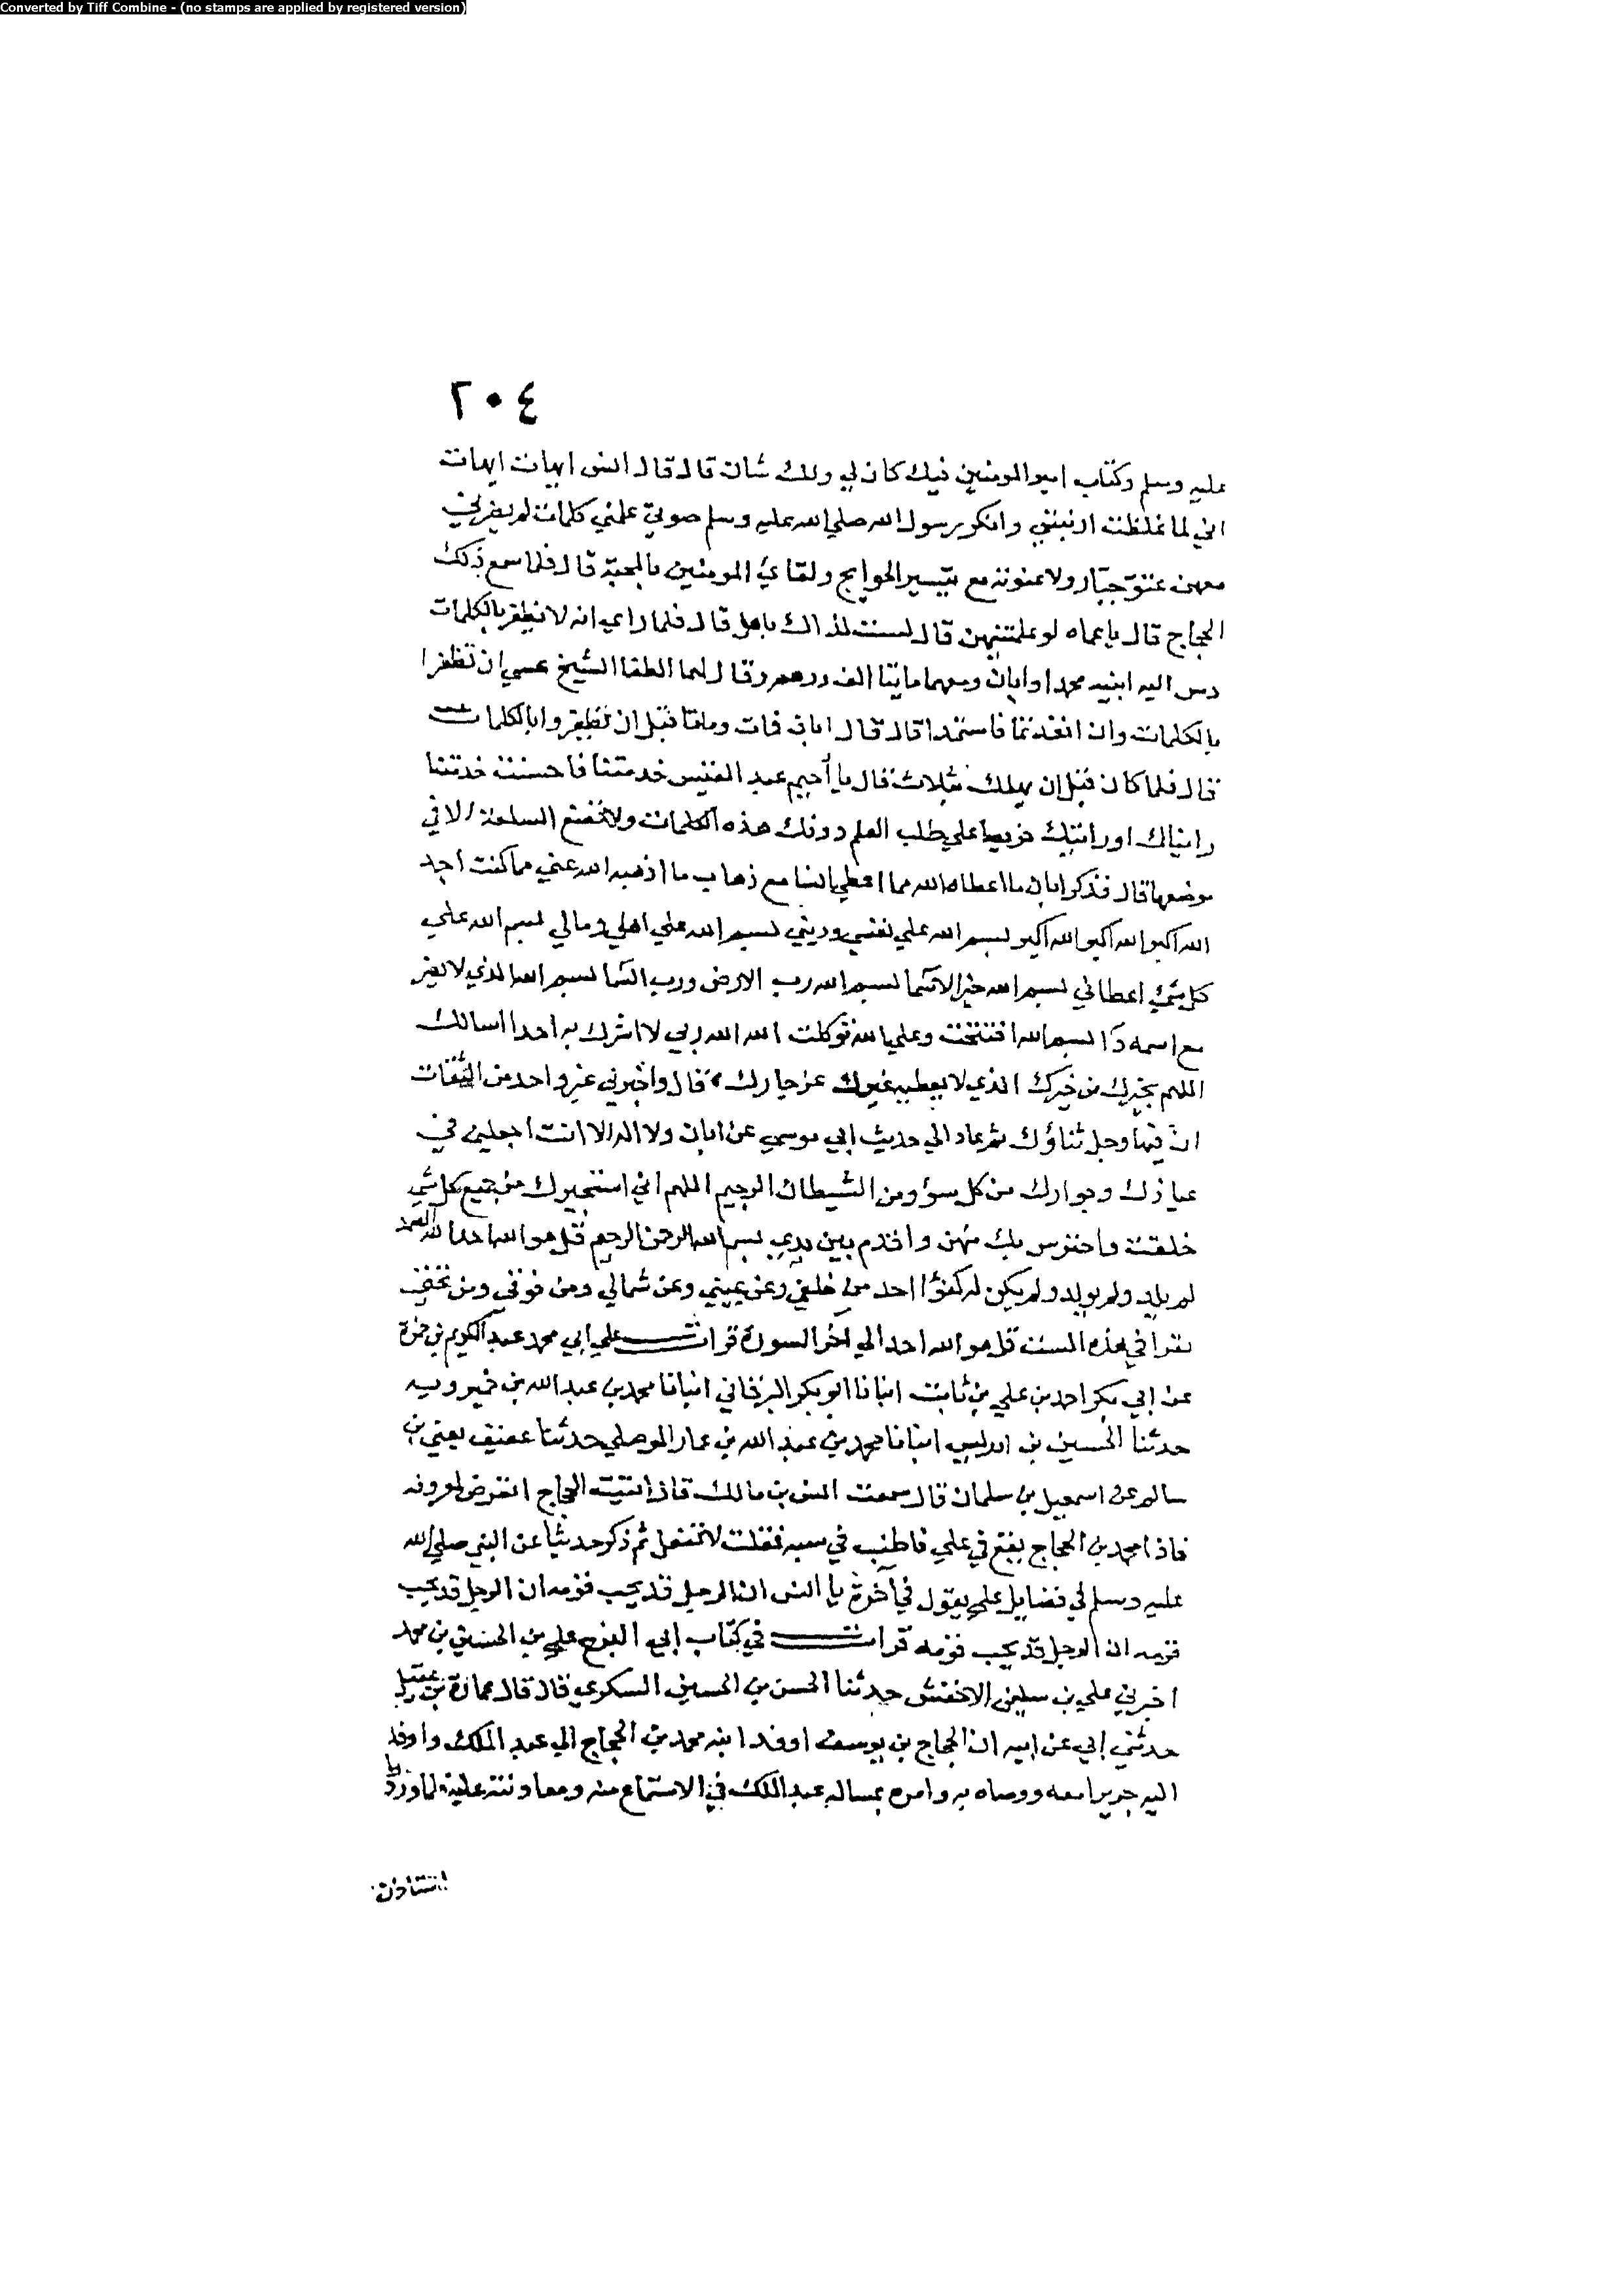 Converted by Tiff Combine - (no stamps are applied by registered version)
٢٠٤
عليه وسلم وكتاب امير المومنين فيك كان لي ولك شان قال قال انس ايهات ايهات
اني لما غلظت ارنبتي وانكر رسول الله صلي الله عليه وسلم صوتي علمني كلمات لم يضرني
معهن عتو جبار ولا عنوته مع تيسير الحوايج ولقاي المومنين بالمحبة قال فلما سمع ذلك
الحجاج قال يا عماه لو علمتنيهن قال لست لذاك باهل قال فلما راي انه لا يظفر بالكلمات
دس اليه ابنيه محمدا وابان ومعهما مايتا الف درهم وقال لهما الطفا الشيخ عسي ان تظفرا
بالكلمات وان انفدتما فاستمدا قال قال ابان فمات وماتا قبل ان تظفروا بالكلمات
قال فلما كان قبل ان يهلك بثلاث قال يا أحيمر عبد القيس خدمتنا فاحسنت خدمتنا
رايناك او رايتك حريصا علي طلب العلم دونك هذه الكلمات ولا تضع السلعة الا في
موضعها قال فذكر ابان ما اعطاه الله مما اعطي انسا مع ذهاب ما اذهبه الله عني مما كنت اجد
الله اكبر الله اكبر الله اكبر بسم الله علي نفسي وديني بسم الله علي اهلي ومالي بسم الله علي
كل شيء اعطاني بسم الله خير الاسما بسم الله رب الارض ورب السما بسم الله الذي لا يضر
مع اسمه دا بسم الله افتتحت وعلي الله توكلت الله الله ربي لا اشرك به احدا اسالك
اللهم بخيرك من خيرك الذي لا يعطيه غيرك عز جارك قال واخبرني غير واحد من الثقات
ان فيها وجل ثناؤك ثم عاد الي حديث ابي موسي عن ابان ولا اله الا انت اجعلني في
عياذك وجوارك من كل سوء ومن الشيطان الرجيم اللهم اني استجيرك من جميع كل شي
خلقت واحترس بك منهن واقدم بين يدي بسم الله الرحمن الرحيم قل هو الله احد الله الصمد
لم يلد ولم يولد ولم يكن له كفؤا احد من خلفي وعن يميني وعن شمالي ومن فوقي ومن تحتي
يقرا في هذه الست قل هو الله احد الي اخر السورة قرات علي ابي محمد عبد الكريم بن حمزة
عن ابي بكر احمد بن علي بن ثابت انبانا ابو بكر البرقاني انبانا محمد بن عبد الله بن خميرويه
حدثنا الحسين بن ادريس انبانا محمد بن عبد الله بن عمار الموصلي حدثنا عفيف يعني بن
سالم عن اسمعيل بن سلمان قال سمعت انس بن مالك قال اتيت الحجاج اتعرض لمعروفه
فاذا محمد بن الحجاج يقع في علي فاطنب في سبه فقلت لا تفعل ثم ذكر حديثا عن النبي صلي الله
عليه وسلم في فضايل علي يقول في آخره يا انس ان الرجل قد يحب قومه ان الرجل قد يحب
قومه ان الرجل قد يحب قومه قرات في كتاب ابي الفرج علي بن الحسين بن محمد
اخبرني علي بن سليمن الاخفش حدثنا الحسن بن الحسين السكري قال قال عمارة بن عقيل
حدثني ابي عن ابيه ان الحجاج بن يوسف اوفد ابنه محمد بن الحجاج الي عبد الملك واوفد
اليه جريرا معه ووصاه به وامره بمسالة عبد الملك في الاستماع منه ومعاونته عليه فلما وردا
استاذن